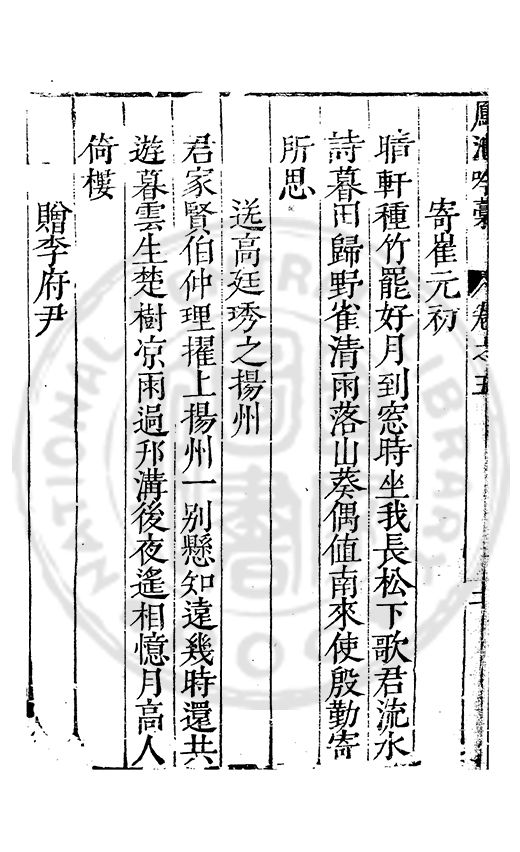 鳳池吟藁 卷之五
寄崔元初
晴軒種竹罷好月到窓時坐我長松下歌君流水
詩暮田歸野雀清雨落山葵偶值南來使殷勤寄
所思
送高廷琇之揚州
君家賢伯仲理擢上揚州一别懸知遠幾時還共
遊暮雲生楚樹凉雨過邗溝後夜遙相憶月高人
倚樓
贈李府尹